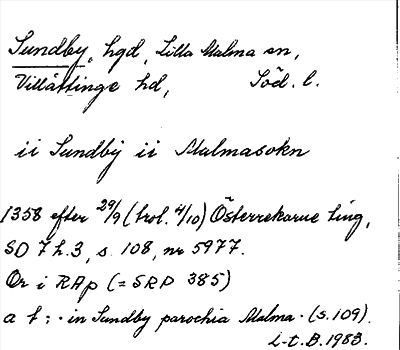 Sundby, hgd, Lilla Malma sn,
Villåttinge hd, Söd. l.
ii Sundby ii Malmasokn
1358 efter 29/9 (trol. 4/10) Österrekarne ting,
SD 7 h.3, s. 108, nr 5977.
Or i RAp (= SRP 385)
a t: · in Sundby parochia Malma · (s. 109).
i-t.B. 1983.